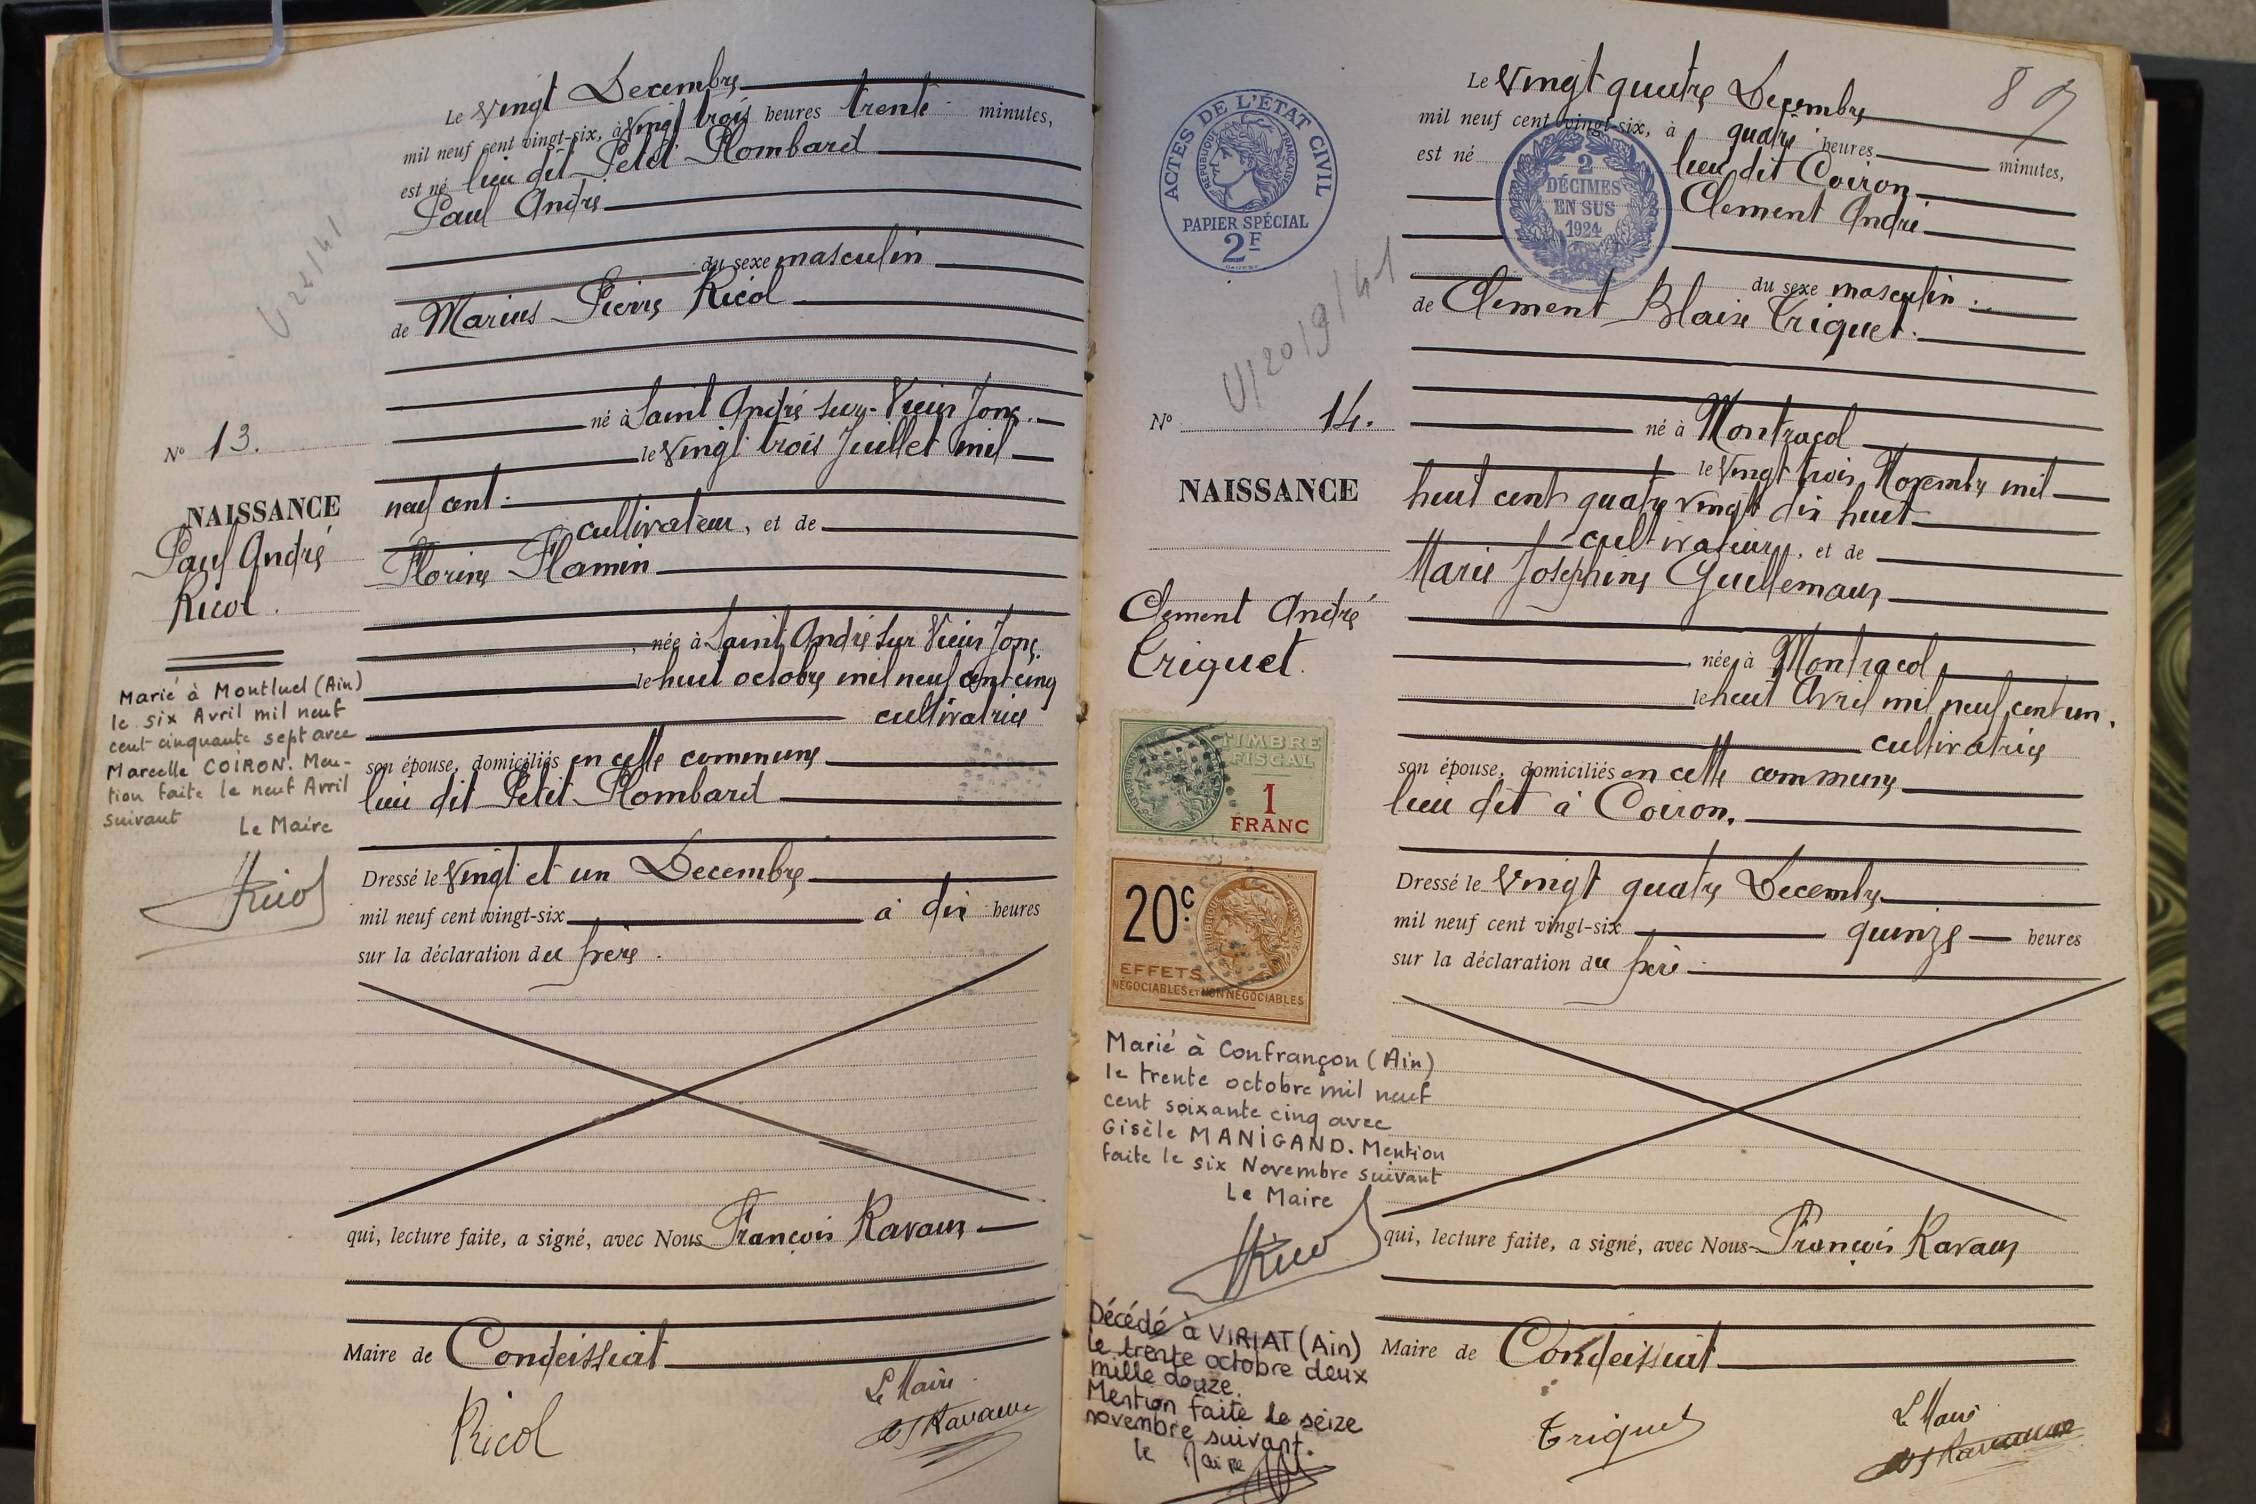 Le vingt Decembre
mil neuf cent vingt-six, à vingt trois heures trente minutes,
est né lieu dit Petit Plombard
Paul André
du sexe masculin
de Marius Pierre Ricol
né à Saint André sur-Vieux Jonc
le vingt trois Juillet mil
neuf cent
cultivateur, et de
Florine Flamin
, née à Saint André sur Vieux Jonc
le huit octobre mil neuf cent cinq
cultivatrice
son épouse, domiciliés en cette commune
lieu dit Petit Plombard
Dressé le vingt et un Decembre
mil neuf cent vingt-six à dix heures
sur la déclaration du père.
qui, lecture faite, a signé, avec Nous François Ravaux
Maire de Condeissiat
Ricol
Le Maire
Ravaux
No 13.
NAISSANCE
Paul André
Ricol.
Marié à Montluel (Ain)
le six Avril mil neuf
cent cinquante sept avec
Marcelle COIRON. Men-
tion faite le neuf Avril
suivant
Le Maire
Ricol
89
Le vingt quatre Decembre
mil neuf cent vingt-six, à quatre heures minutes,
est né lieu dit Coiron
Clement André
du sexe masculin.
de Clement Blaise Triquet.
né à Montracol
le vingt trois Novembre mil
huit cent quatre vingt dix huit
cultivateur, et de
Marie Josephine Guillemaux
, née à Montracol
le huit Avril mil neuf cent un.
cultivatrice
son épouse, domiciliés en cette commune
lieu dit à Coiron.
Dressé le vingt quatre Decembre
mil neuf cent vingt-six quinze heures
sur la déclaration du père
qui, lecture faite, a signé, avec Nous François Ravaux
Maire de Condeissiat
Triquet
Le Maire
Ravaux
ACTES DE L'ÉTAT CIVIL
RÉPUBLIQUE FRANÇAISE
PAPIER SPÉCIAL
2F
2
DÉCIMES
EN SUS
1924
U/20/9/41
No 14.
NAISSANCE
Clement André
Triquet.
TIMBRE
FISCAL
1
FRANC
20c
EFFETS
NÉGOCIABLES ET NON NÉGOCIABLES
Marié à Confrançon (Ain)
le trente octobre mil neuf
cent soixante cinq avec
Gisèle MANIGAND. Mention
faite le six Novembre suivant
Le Maire
Ricol
Décédé à VIRIAT (Ain)
le trente octobre deux
mille douze.
Mention faite le seize
novembre suivant.
le Maire